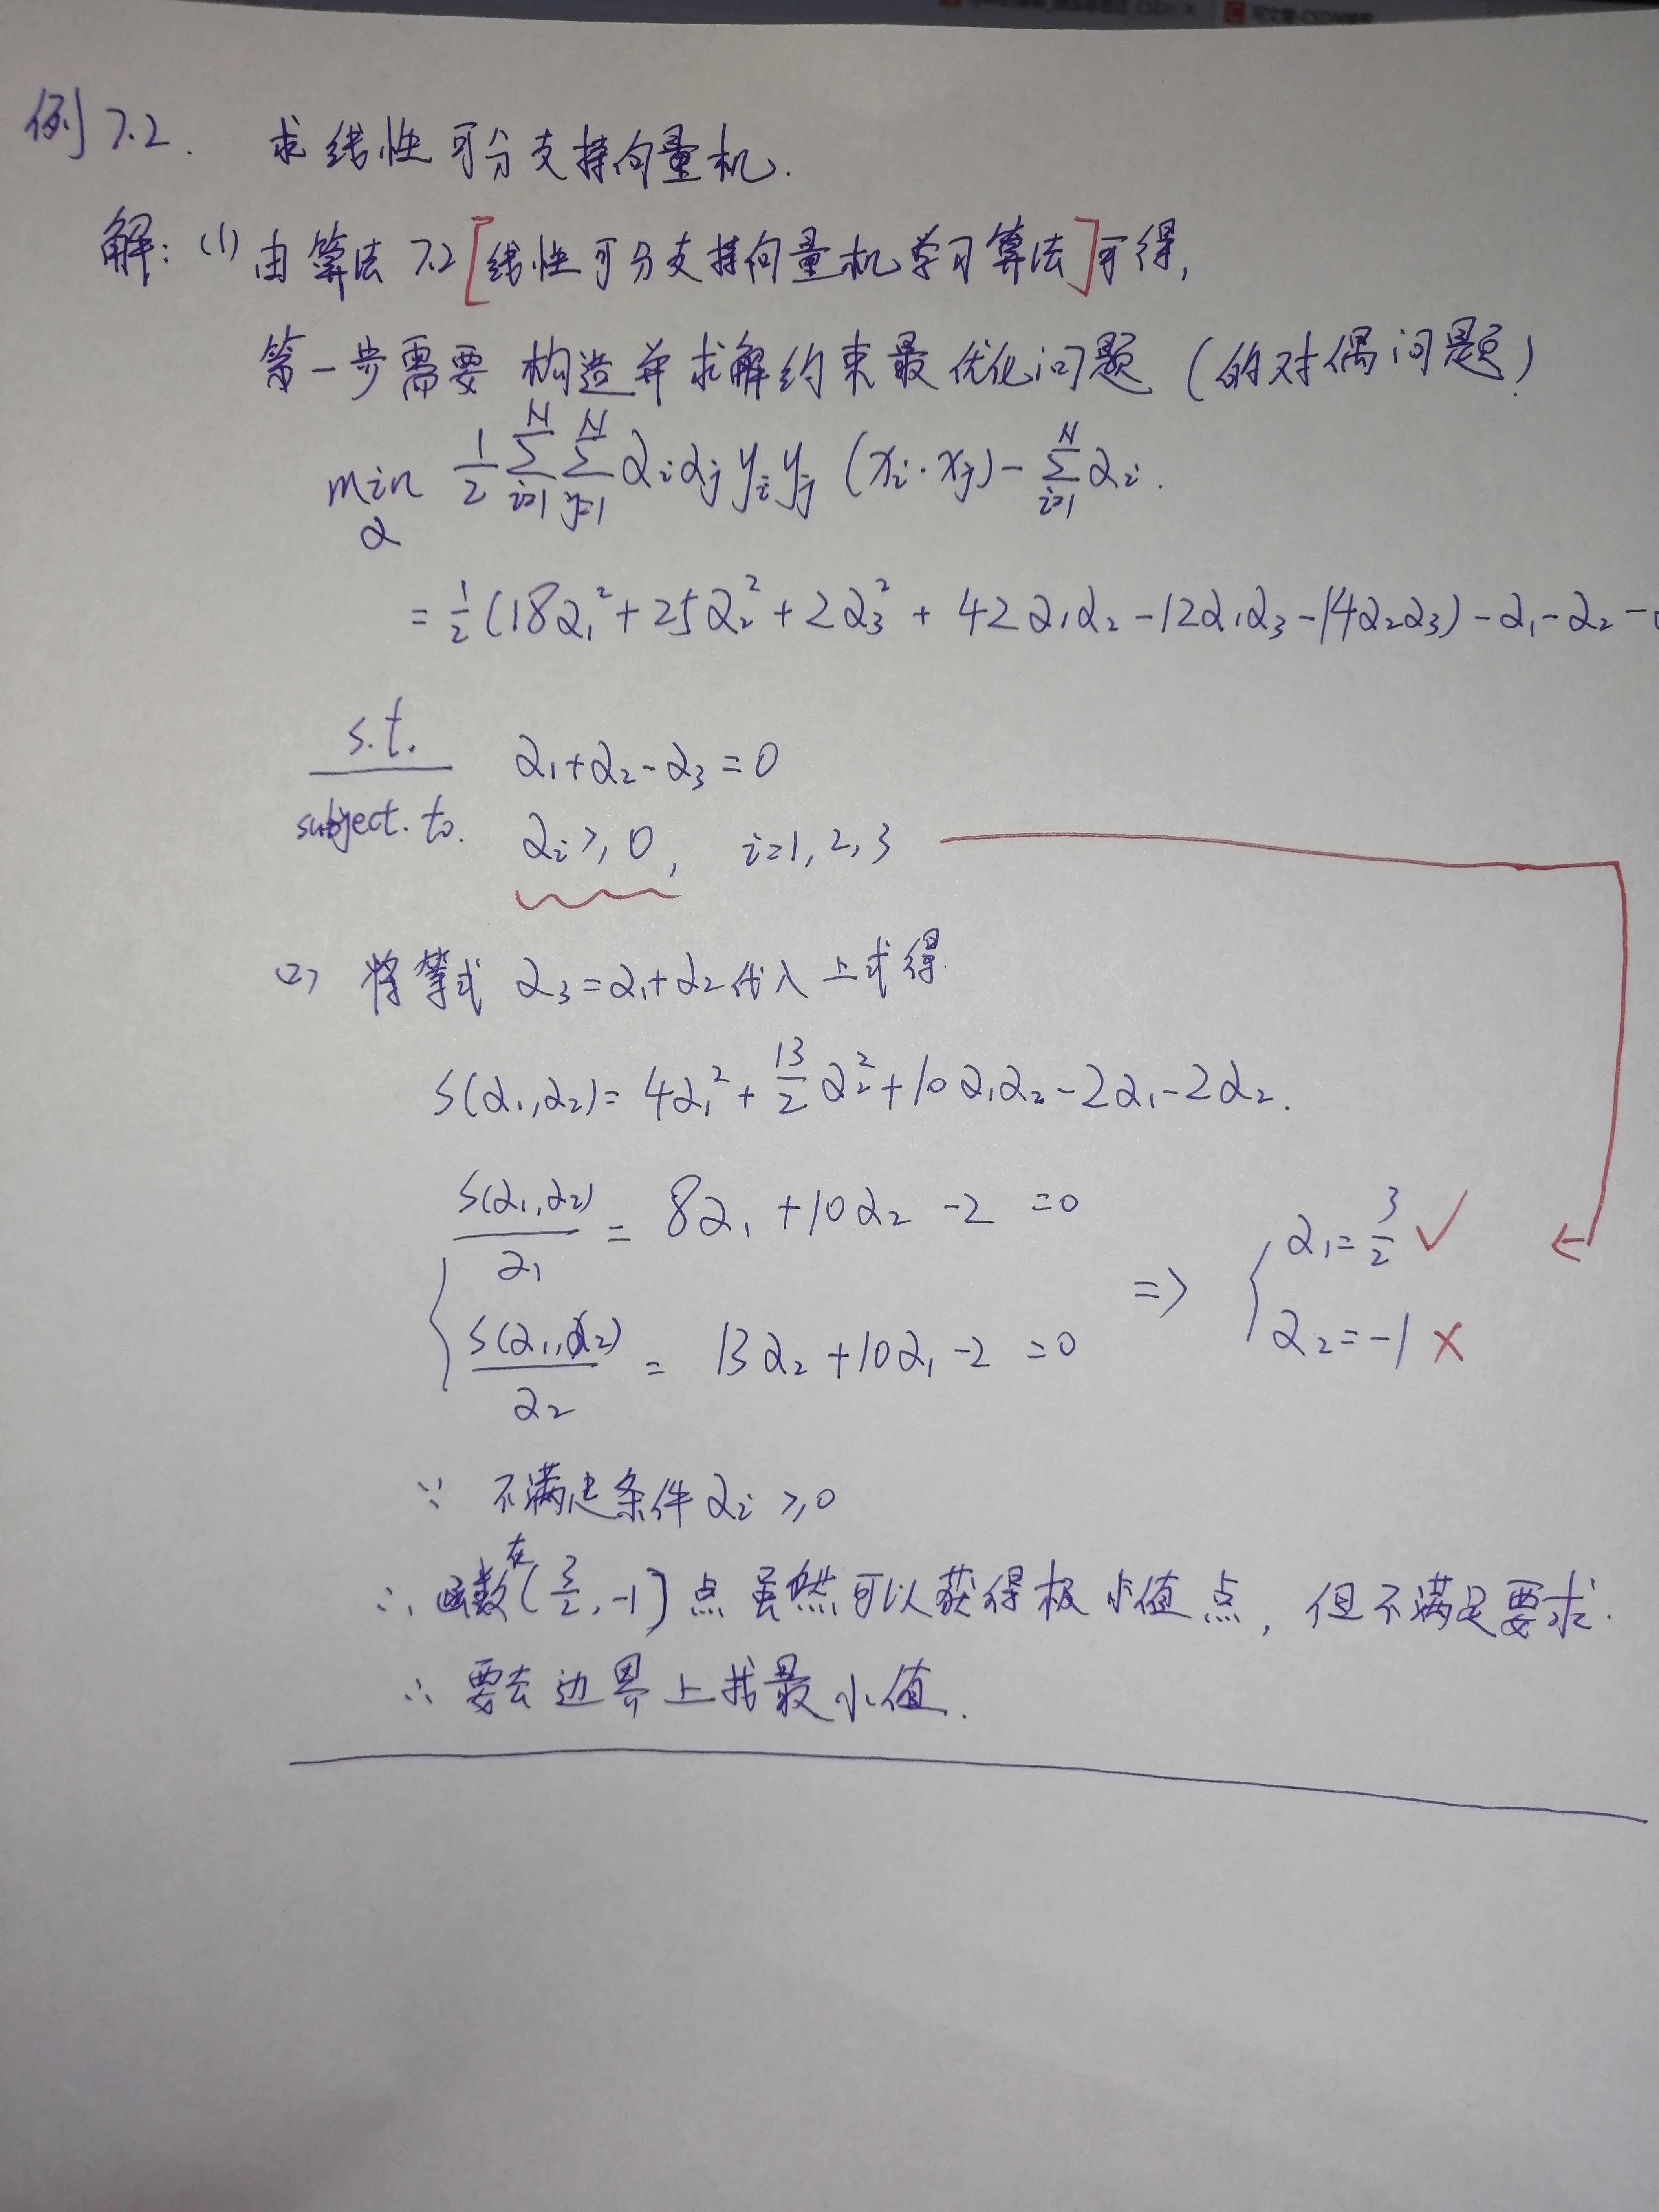 例7.2. 求线性可分支持向量机.
解: (1) 由算法 7.2[线性可分支持向量机学习算法]可得,
第一步需要构造并求解约束最优化问题 (的对偶问题)
min_α 1/2 Σ_{i=1}^{N} Σ_{j=1}^{N} α_i α_j y_i y_j (x_i · x_j) - Σ_{i=1}^{N} α_i .
= 1/2 (18α₁² + 25α₂² + 2α₃² + 42α₁α₂ - 12α₁α₃ - 14α₂α₃) - α₁ - α₂ -
s.t. α₁+α₂-α₃=0
subject. to. α_i ≥ 0, i=1, 2, 3
(2) 将等式 α₃=α₁+α₂代入上式得.
S(α₁,α₂)= 4α₁² + 13/2 α₂² + 10α₁α₂ - 2α₁ - 2α₂.
{ S(α₁,α₂)/α₁ = 8α₁ + 10α₂ - 2 = 0
S(α₁,α₂)/α₂ = 13α₂ + 10α₁ - 2 = 0
=> { α₁ = 3/2 ✓
α₂ = -1 ×
∵ 不满足条件 α_i ≥ 0
∴ 函数在(3/2, -1)点虽然可以获得极小值点, 但不满足要求.
∴ 要去边界上找最小值.